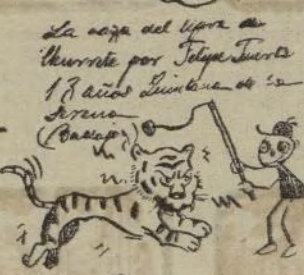 La caza del tigre de
Churrete por Felipe Fuerte
13 años Quintana de la
Serena
(Badajoz)